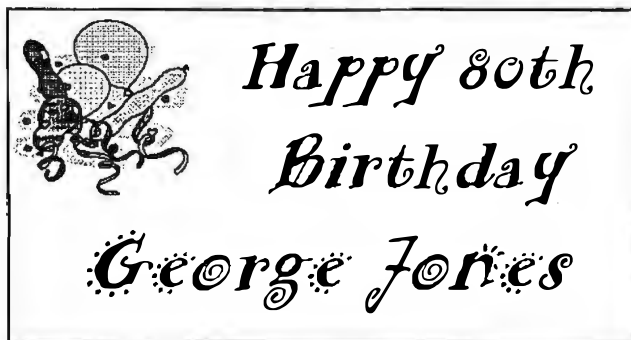 Happy 80th
Birthday
George Jones